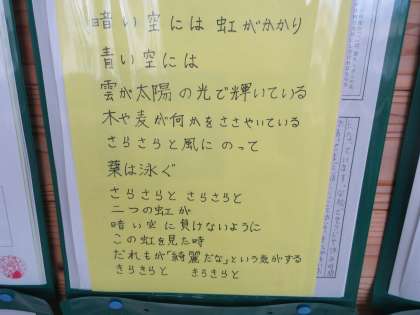 暗い空には 虹がかかり
青い空には
雲が太陽の光で輝いている
木や麦が何かをささやいている
さらさらと風にのって
葉は泳ぐ
さらさらと さらさらと
二つの虹が
暗い空に負けないように
この虹を見た時
だれもが「綺麗だな」という気がする
きらきらと きらきらと